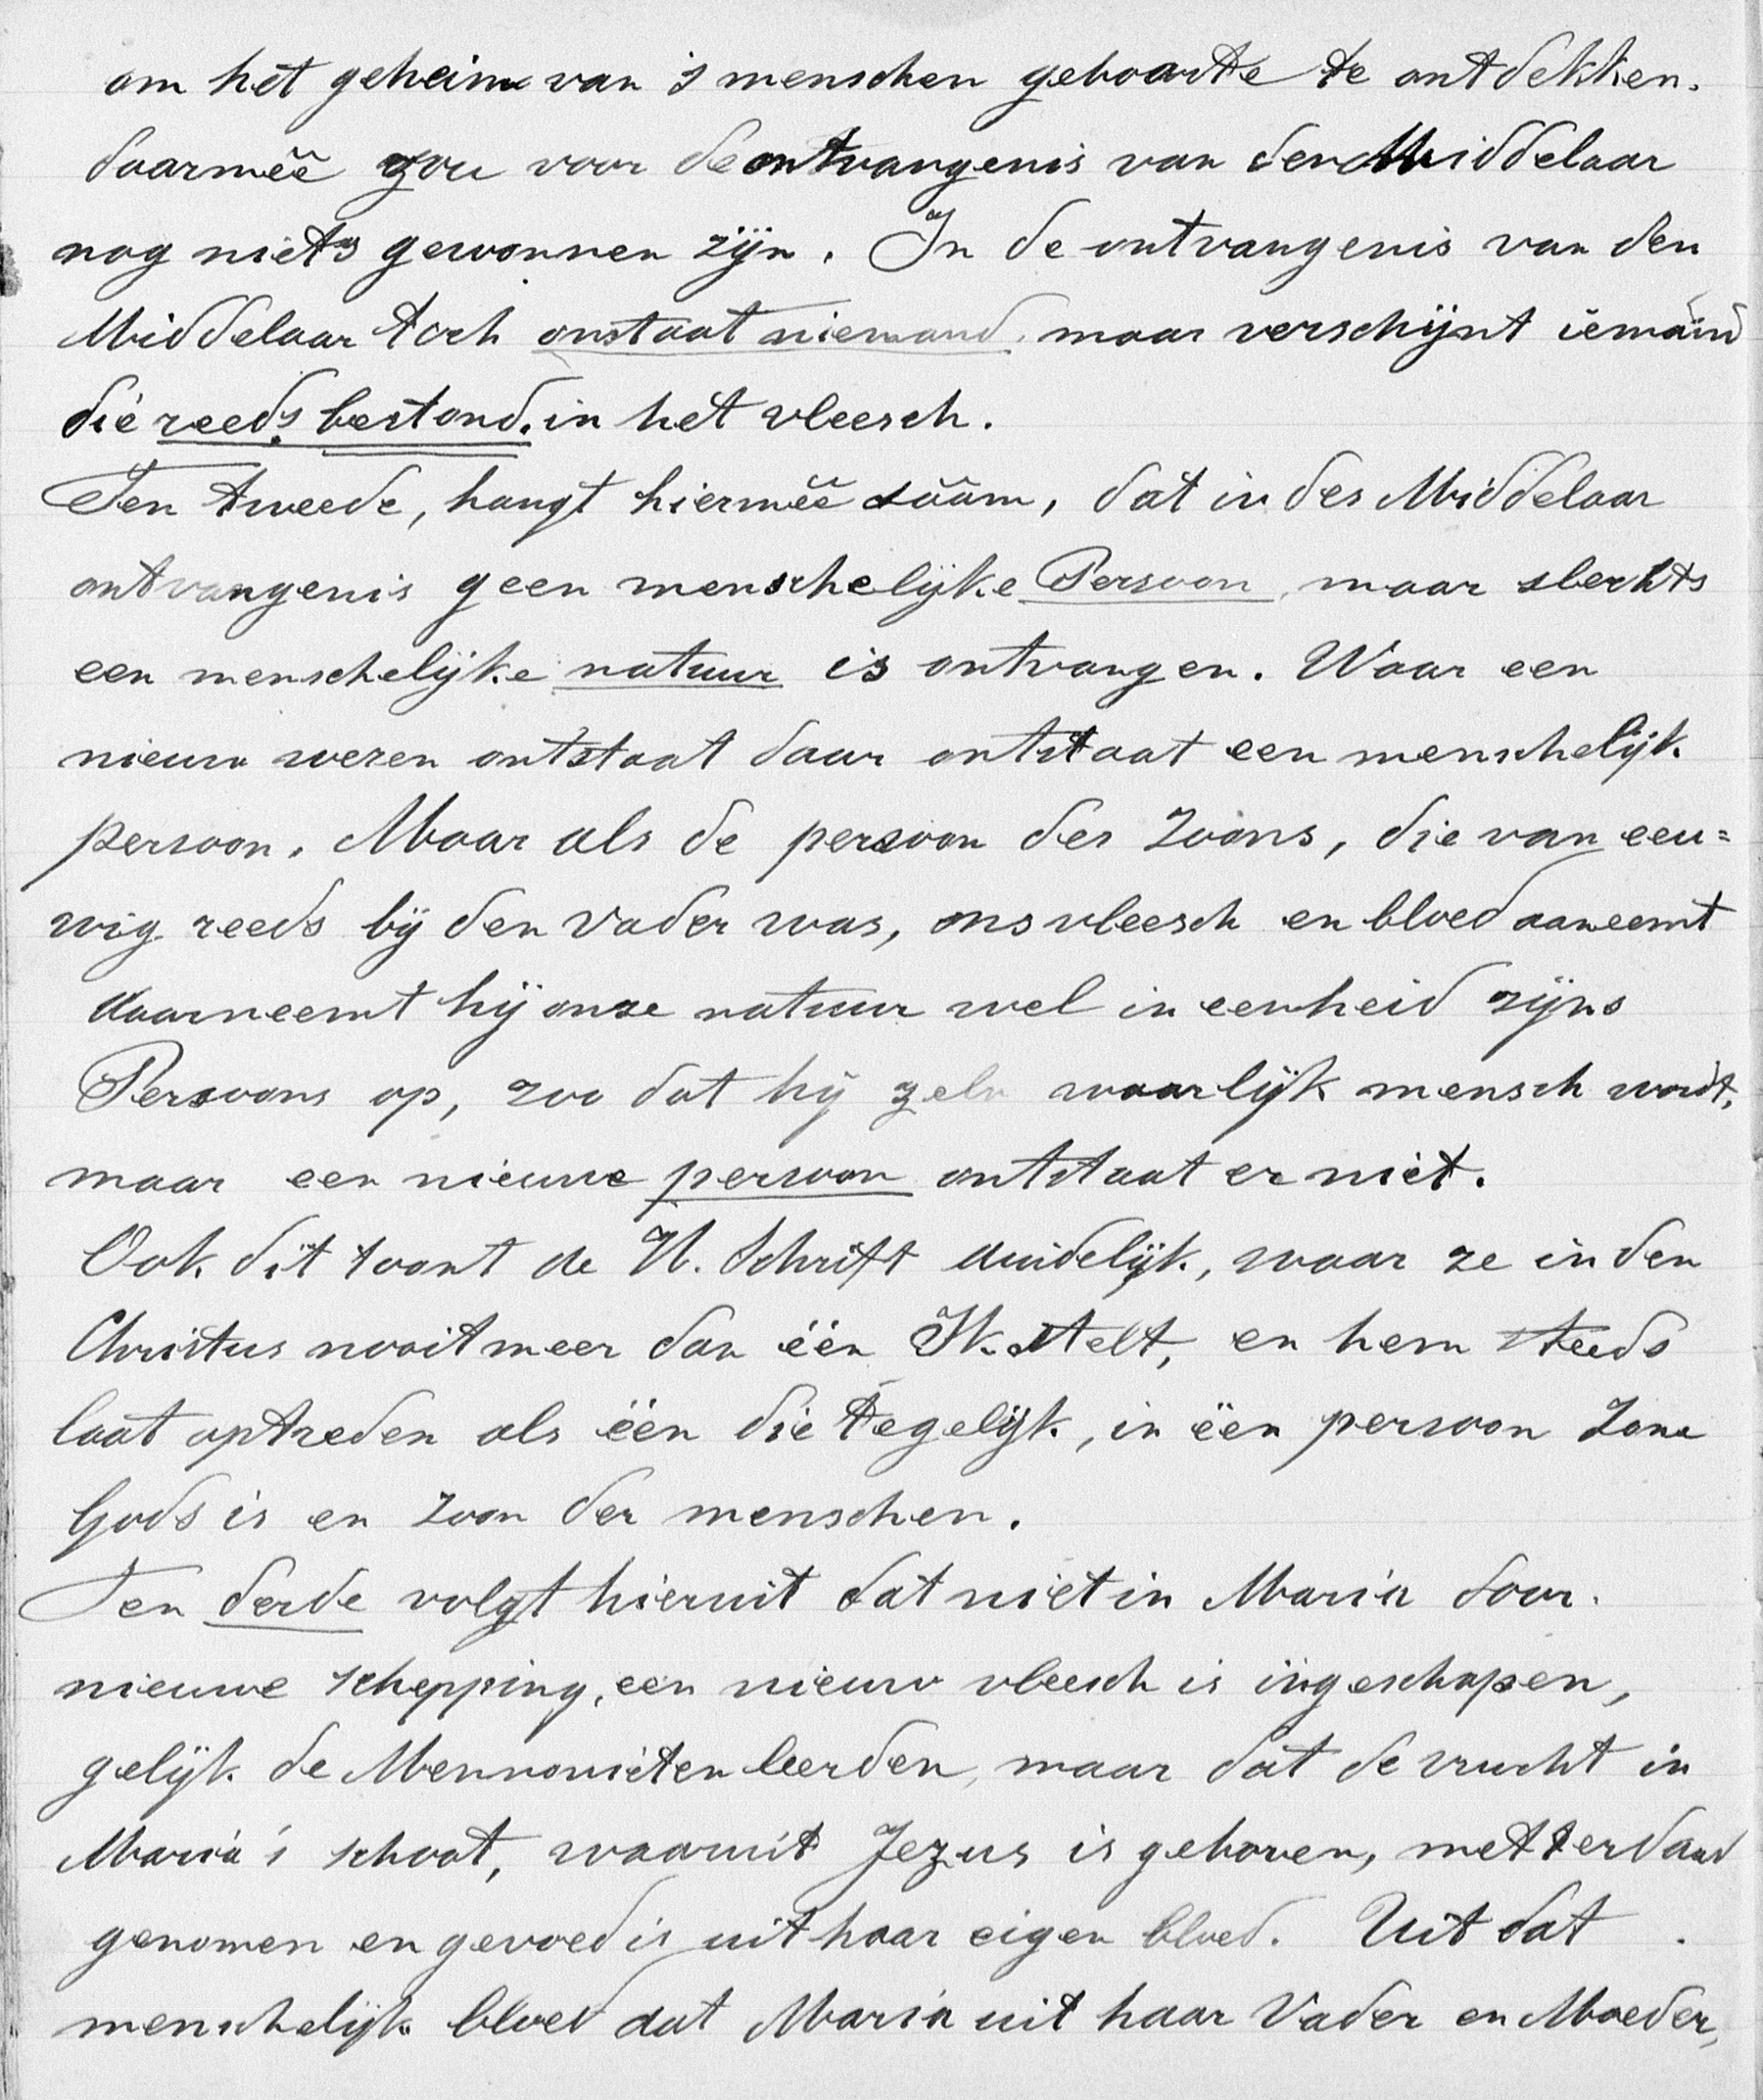 om het geheim van 's menschen geboorte te ontdekken.
daarmêê zou voor de ontvangenis van den Middelaar
nog niets gewonnen zijn. In de ontvangenis van den
Middelaar toch onstaat niemand, maar verschijnt iemand
die reeds bestond, in het vleesch.
Ten tweede, hangt hiermêê sââm, dat in des Middelaar
ontvangenis geen menschelijke Persoon, maar slechts
een menschelijke natuur is ontvangen. Waar een
nieuw wezen ontstaat daar ontstaat een menschelijk
persoon. Maar als de persoon des Zoons, die van eeu=
wig reeds bij den Vader was, ons vleesch en bloed aaneemt
daarneemt hij onze natuur wel in eenheid zijns
Persoons op, zoo dat hij zelv waarlijk mensch wordt,
maar een nieuwe persoon ontstaat er niet.
Ook dit toont de H. Schrift duidelijk, waar ze in den
Christus nooit meer dan één Ik stelt, en hem steeds
laat optreden als één die tegelijk, in één persoon Zone
Gods is en zoon der menschen.
Ten derde volgt hieruit dat niet in Maria door
nieuwe schepping, een nieuw vleesch is ingeschapen,
gelijk de Mennonieten leerden, maar dat de vrucht in
Maria's schoot, waaruit Jezus is geboren, metterdaad
genomen en gevoed is uit haar eigen bloed. Uit dat
menschelijk bloed dat Maria uit haar Vader en Moeder,